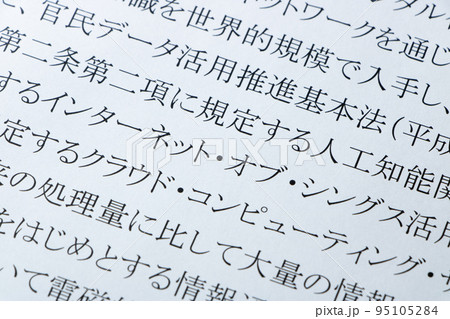 ットワークを通じ
識を世界的規模で入手し、
、官民データ活用推進基本法(平成
第二条第二項に規定する人工知能関
するインターネット・オブ・シングス活用
定するクラウド・コンピューティング・サ
の処理量に比して大量の情報
をはじめとする情報
いて電磁
PIXTA
pixta.jp - 95105284